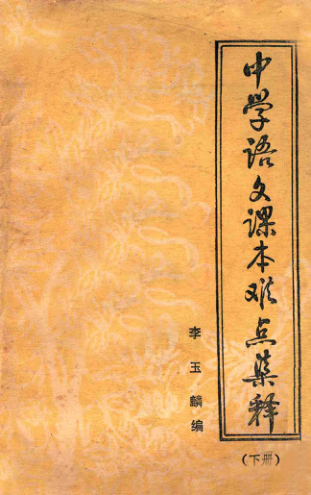 中学语文课本难点集释
（下册）
李玉麟编